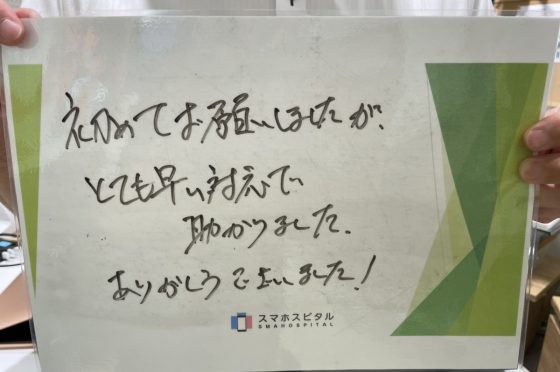 初めてお願いしましたが、
とても早い対応で
助かりました。
ありがとうございました!
スマホスピタル
SMAHOSPITAL